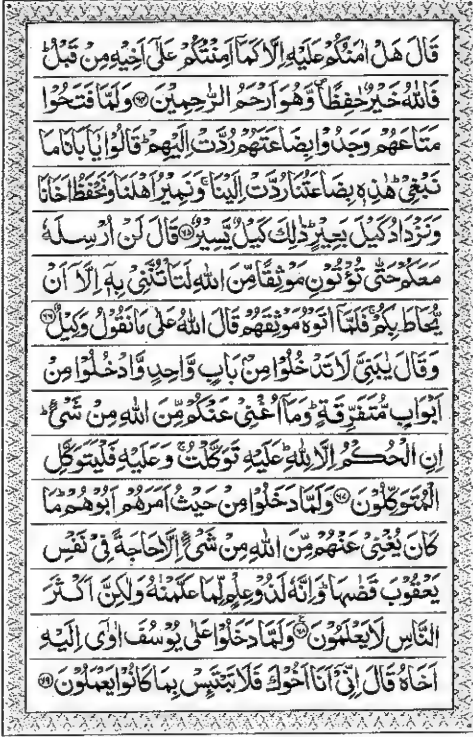 قَالَ هَلْ اٰمَنُكُمْ عَلَيْهِ اِلَّا كَمَاۤ اَمِنْتُكُمْ عَلٰۤى اَخِيْهِ مِنْ قَبْلُ ؕ
فَاللّٰهُ خَيْرٌ حٰفِظًا ۪ وَّهُوَ اَرْحَمُ الرّٰحِمِيْنَ ﴿۶۴﴾ وَلَمَّا فَتَحُوْا
مَتَاعَهُمْ وَجَدُوْا بِضَاعَتَهُمْ رُدَّتْ اِلَيْهِمْ ؕ قَالُوْا يٰۤاَبَانَا مَا
نَبْغِيْ ؕ هٰذِهٖ بِضَاعَتُنَا رُدَّتْ اِلَيْنَا ۚ وَنَمِيْرُ اَهْلَنَا وَنَحْفَظُ اَخَانَا
وَنَزْدَادُ كَيْلَ بَعِيْرٍ ؕ ذٰلِكَ كَيْلٌ يَّسِيْرٌ ﴿۶۵﴾ قَالَ لَنْ اُرْسِلَهٗ
مَعَكُمْ حَتّٰى تُؤْتُوْنِ مَوْثِقًا مِّنَ اللّٰهِ لَتَاْتُنَّنِيْ بِهٖۤ اِلَّاۤ اَنْ
يُّحَاطَ بِكُمْ ۚ فَلَمَّاۤ اٰتَوْهُ مَوْثِقَهُمْ قَالَ اللّٰهُ عَلٰى مَا نَقُوْلُ وَكِيْلٌ ﴿۶۶﴾
وَقَالَ يٰبَنِيَّ لَا تَدْخُلُوْا مِنْۢ بَابٍ وَّاحِدٍ وَّادْخُلُوْا مِنْ
اَبْوَابٍ مُّتَفَرِّقَةٍ ؕ وَمَاۤ اُغْنِيْ عَنْكُمْ مِّنَ اللّٰهِ مِنْ شَيْءٍ ؕ
اِنِ الْحُكْمُ اِلَّا لِلّٰهِ ؕ عَلَيْهِ تَوَكَّلْتُ ۚ وَعَلَيْهِ فَلْيَتَوَكَّلِ
الْمُتَوَكِّلُوْنَ ﴿۶۷﴾ وَلَمَّا دَخَلُوْا مِنْ حَيْثُ اَمَرَهُمْ اَبُوْهُمْ ؕ مَا
كَانَ يُغْنِيْ عَنْهُمْ مِّنَ اللّٰهِ مِنْ شَيْءٍ اِلَّا حَاجَةً فِيْ نَفْسِ
يَعْقُوْبَ قَضٰىهَا ؕ وَاِنَّهٗ لَذُوْ عِلْمٍ لِّمَا عَلَّمْنٰهُ وَلٰكِنَّ اَكْثَرَ
النَّاسِ لَا يَعْلَمُوْنَ ﴿۶۸﴾ وَلَمَّا دَخَلُوْا عَلٰى يُوْسُفَ اٰوٰۤى اِلَيْهِ
اَخَاهُ قَالَ اِنِّيْۤ اَنَا اَخُوْكَ فَلَا تَبْتَىِٕسْ بِمَا كَانُوْا يَعْمَلُوْنَ ﴿۶۹﴾